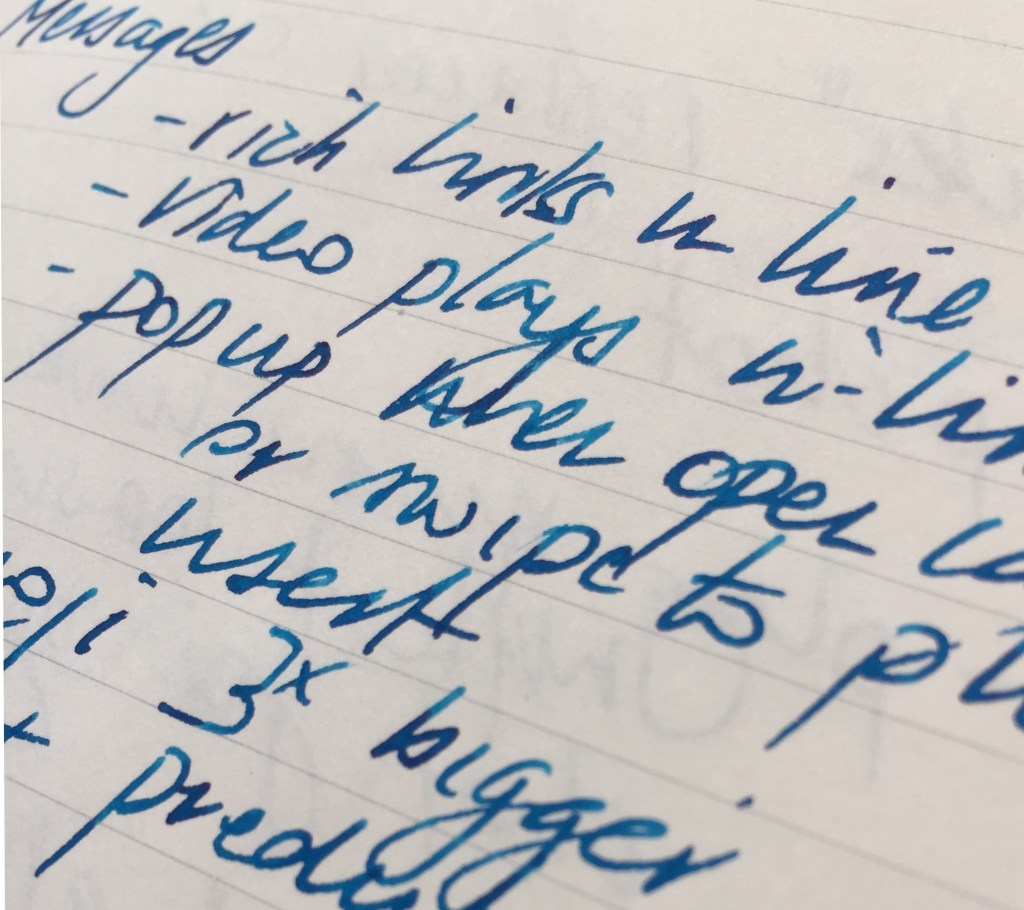 Messages
- rich links in line
- video plays in-lin
- popup when open ca
or swipe to pu
insert
oji 3x bigger
t predic